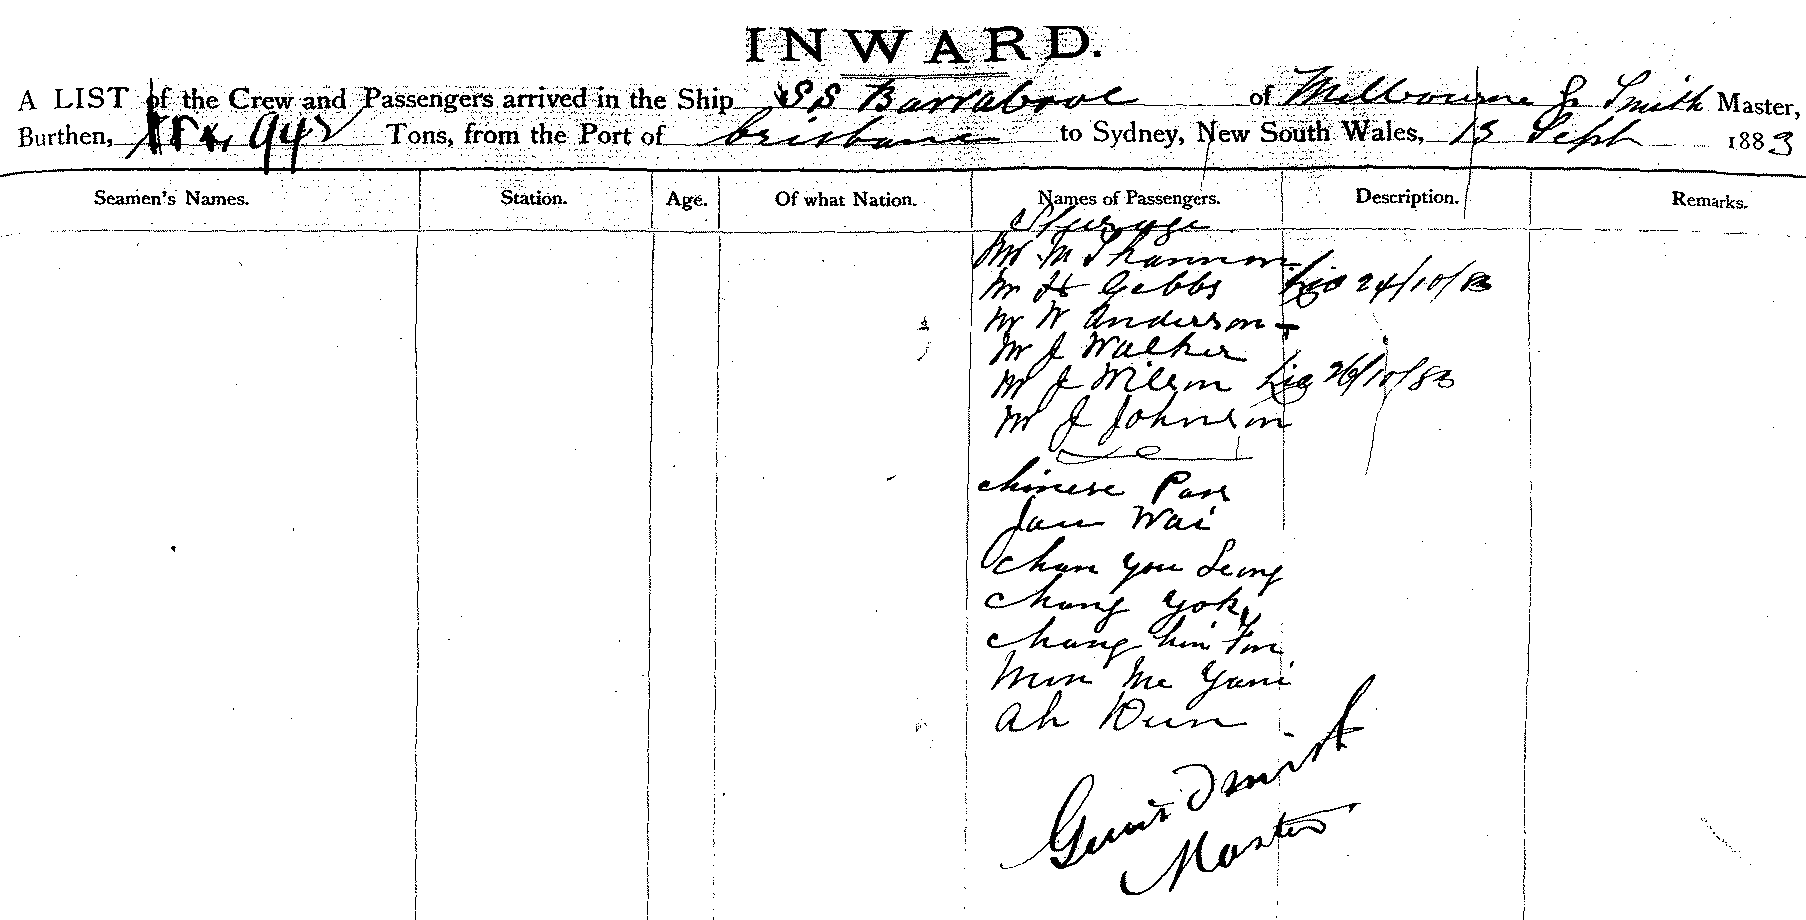 INWARD.
A LIST of the Crew and Passengers arrived in the Ship SS Barrabool of Melbourne J Smith Master,
Burthen, 942 Tons, from the Port of Brisbane to Sydney, New South Wales, 13 Sept 1883
Seamen's Names. Station. Age. Of what Nation. Names of Passengers. Description. Remarks.
Steerage
Mr M Shannon
Mr H Gibbs 24/10/83
Mr W Anderson
Mr J Walker
Mr J Wilson 26/10/83
Mr J Johnson
Chinese Pass
Jau Wai
Chan You Leung
Chung Yok
Chung hin
Mun Me
Ah Kun
Smith
Master